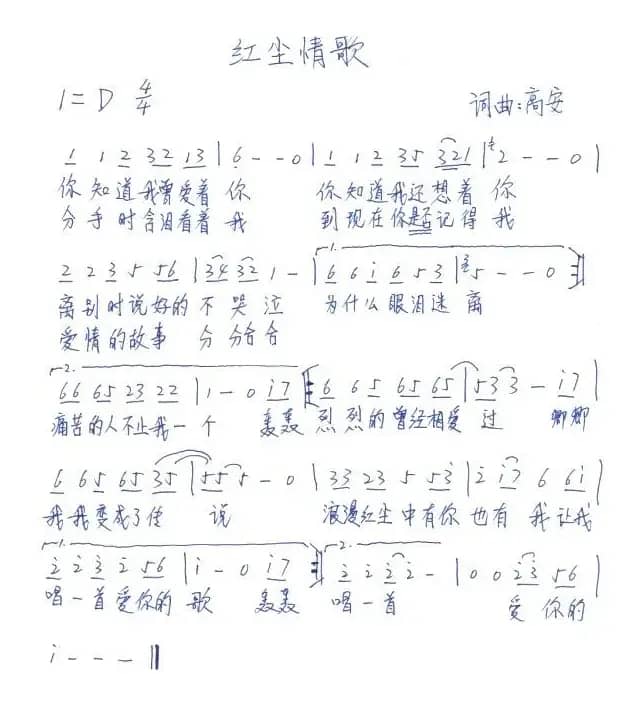 红尘情歌
1=D 4/4 词曲:高安
1 1 2 32 13 | 6 - - 0 | 1 1 2 35 321 | 2 - - 0 |
你知道我曾爱着 你 你知道我还想着 你
分手时含泪看着 我 到现在你是否记得 我
2 2 3 5 56 | 34 32 1 - | 1. 6 6 i 6 5 3 | 5 - - 0 :||
离别时说好的 不 哭 泣 为什么眼泪迷 离
爱情的故事 分 分合合
2. 66 65 23 22 | 1 - 0 i7 ||: 6 6 5 65 65 | 5 3 3 - i7 |
痛苦的人不止我一 个 轰轰 烈烈的曾经相爱 过 卿卿
6 6 5 65 35 | 5 5 5 - 0 | 33 23 5 53 | 2 i7 6 6i |
我我变成了传 说 浪漫红尘 中有你 也有 我让我
1. 2 2 3 2 56 | i - 0 i7 :|| 2. 2 2 2 2 - | 0 0 23 56 |
唱一首爱你的 歌 轰轰 唱一首 爱 你的
i - - - ||